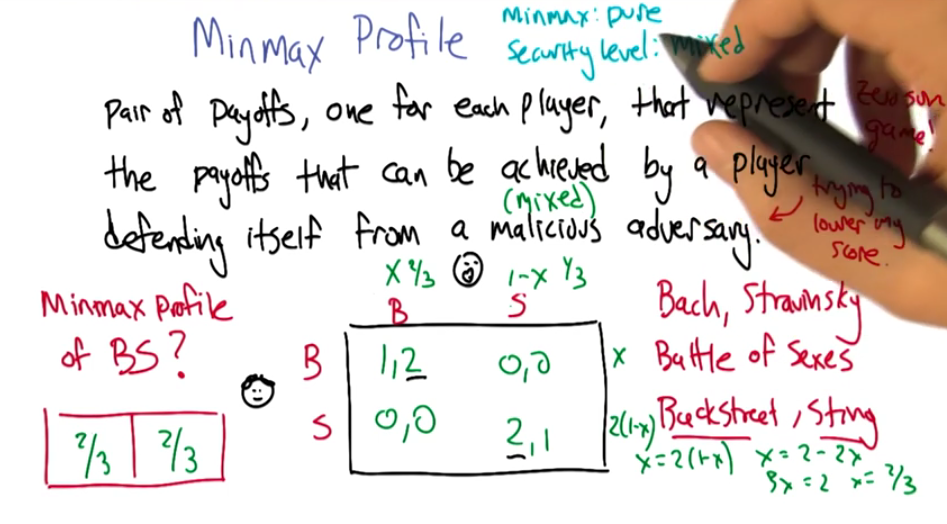 Minmax Profile
Minmax: pure
Security level: mixed
Pair of payoffs, one for each player, that represent
the payoffs that can be achieved by a player
(mixed)
defending itself from a malicious adversary.
Zero sum
game!
trying to
lower my
score.
x 2/3
1-x 1/3
B
S
Minmax Profile
of BS?
2/3
2/3
B
1,2
0,0
x
S
0,0
2,1
2(1-x)
Bach, Stravinsky
Battle of Sexes
Backstreet, Sting
x=2(1-x)
x=2-2x
3x=2
x=2/3